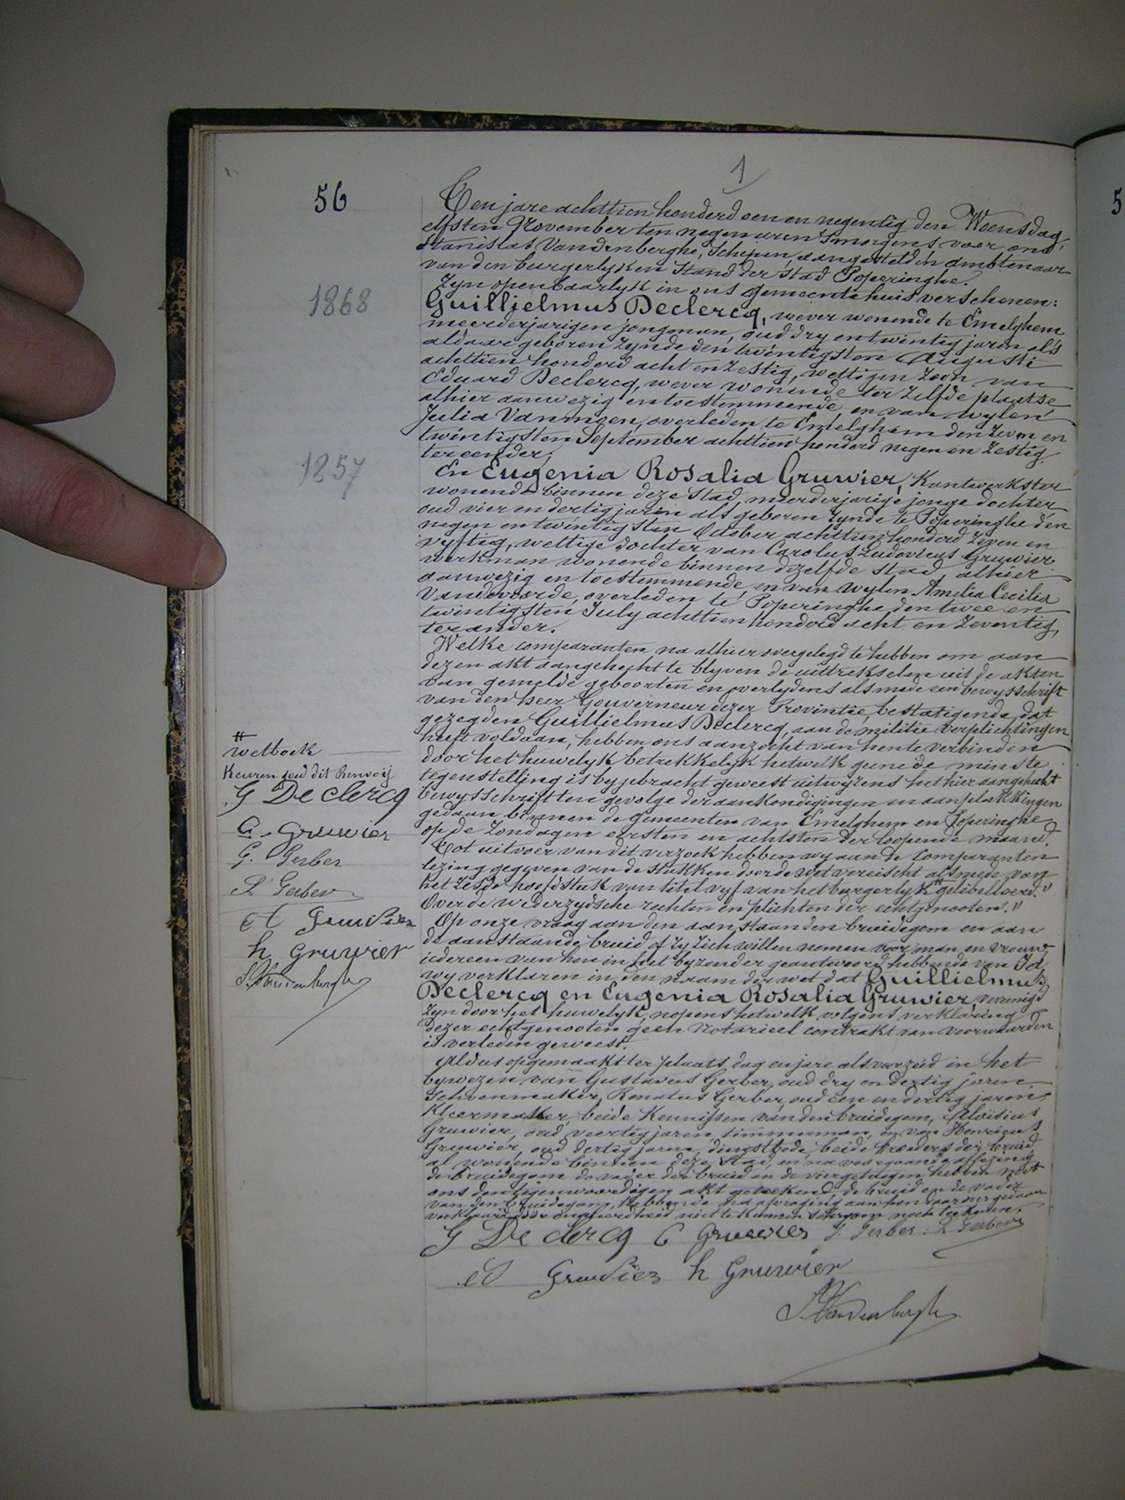 1
56
Ten jare achttien honderd een en negentig den Woensdag
elfsten November ten negen uren 's morgens voor ons
Stanislas Vandenberghe, Schepen, aangesteld in ambtenaar
van den burgerlyken Stand der Stad Poperinghe.
Zyn openbaarlyk in ons gemeentehuis verschenen:
1868
Guillielmus Declercq, wever wonende te Emelghem
meerderjarigen jongman, oud dry en twintig jaren als
aldaar geboren zynde den twintigsten Augusti
achttien honderd acht en zestig, wettigen zoon van
Eduard Declercq, wever wonende ter zelfde plaatse
alhier aanwezig en toestemmende, en van wylen
Julia Vaningen, overleden te Emelghem den zeven en
twintigsten September achttien honderd negen en zestig
ter eender;
1857
En Eugenia Rosalia Gruwier, Kantwerkster
wonende binnen deze stad, meerderjarige jonge dochter
oud vier en dertig jaren als geboren zynde te Poperinghe den
negen en twintigsten October achttien honderd zeven en
vyftig, wettige dochter van Carolus Ludovicus Gruwier
werkman wonende binnen dezelfde stad alhier
aanwezig en toestemmende, en van wylen Amelia Cecilia
Vandevoorde, overleden te Poperinghe, den twee en
twintigsten July achttien honderd acht en zeventig,
ter ander.
Welke comparanten na alhier overgelegd te hebben om aan
dezen akt aangehecht te blyven de uittrekselen uit de akten
van gemelde geboorten en overlydens alsmede een bewysschrift
van den heer Gouverneur dezer Provintie, bestatigende dat
gezegden Guillielmus Declercq, aan de militie verplichtingen
heeft voldaan, hebben ons aanzocht van hen te verbinden
door het huwelyk betrekkelyk hetwelk geene de minste
tegenstelling is bygebracht geweest uitwyzens het hier aangehecht
bewysschrift ten gevolge der aankondigingen en aanplakkingen
gedaan binnen de gemeenten van Emelghem en Poperinghe
op de Zondagen eersten en achtsten der loopende maand.
Tot uitvoer van dit verzoek hebben wy aan de comparanten
lezing gegeven van de stukken door de wet vereischt alsmede van
het zesde hoofdstuk van titel vyf van het burgerlyk # getibelleerd "
Over de wederzydsche rechten en plichten der echtgenooten."
Op onze vraag aan den aanstaanden bruidegom en aan
de aanstaande bruid of zy zich willen nemen voor man en vrouw
iedereen van hen in het byzonder geantwoord hebbende van Ja,
wy verklaren in den naam der wet dat Guillielmus
Declercq en Eugenia Rosalia Gruwier, vereenigd
zyn door het huwelyk, nopens hetwelk volgens verklaring
dezer echtgenooten geen notarieel contrakt van voorwaarden
is verleden geweest.
Aldus opgemaakt ter plaats, dag en jare als voorzeid in het
bywezen van Gustavus Gerber, oud dry en dertig jaren
Schoenmaker, Renatus Gerber, oud een en dertig jaren,
Kleermaker, beide Kennissen van den bruidegom, Aloisius
Gruwier, oud veertig jaren timmerman, en van Henricus
Gruwier, oud dertig jaren, dienstbode, beide broeders der bruid
al wonende binnen deze Stad, en na voorgaande aflezing
de bruidegom de vader der bruid en de vier getuigen hebben met
ons den tegenwoordigen akt geteekend, de bruid en de vader
van den bruidegom, hebbende na afvraging aan hen van ons gedaan
verklaard door ongeleerdheid niet te kunnen schryven noch teekenen.
G Declercq C Gruwier G. Gerber R Gerber
A Gruwier h Gruwier
S. Vandenberghe
# wetboek
Keuren goed dit Renvoij
G Declercq
C. Gruwier
G. Gerber
R Gerber
A Gruwier
h Gruwier
S. Vandenberghe
5